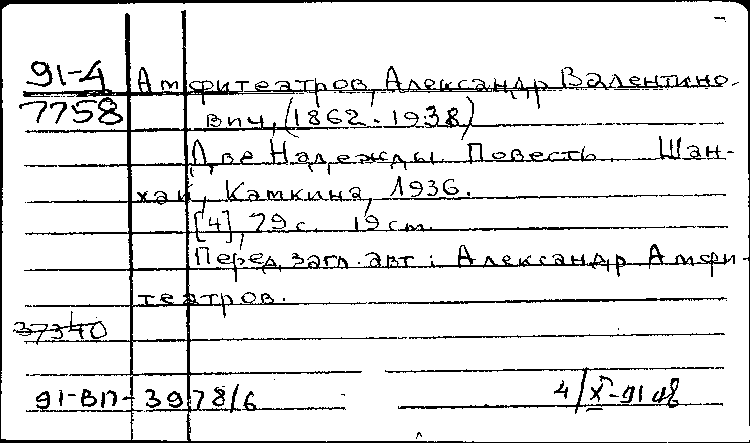 91-4 Амфитеатров, Александр Валентино-
7758 вич, (1862-1938)
Две Надежды. Повесть. Шан-
хай, Камкина, 1936.
[4], 79 с. 19 см.
Перед загл. авт.: Александр Амфи-
театров.
37340
91-ВП-3978/6 4/X-91